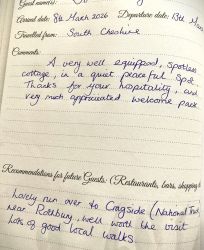 Guest name(s):
Arrival date: 8th March 2026 Departure date: 13th Mar
Travelled from: South Cheshire
Comments:
A very well equipped, spotless
cottage, in a quiet peaceful spot
Thanks for your hospitality, and
very much appreciated welcome pack
Recommendations for future Guests: (Restaurants, bars, shopping &
Lovely run over to Cragside (National Trust)
near Rothbury, well worth the visit
Lots of good local walks.